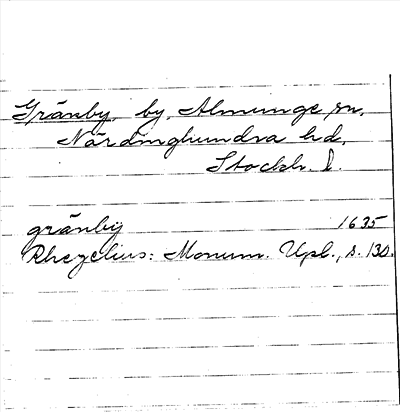 Gränby, by, Almunge sn,
Närdinghundra hd,
Stockh. l.
gränby 1635
Rhezelius: Monum. Upl., s. 130.